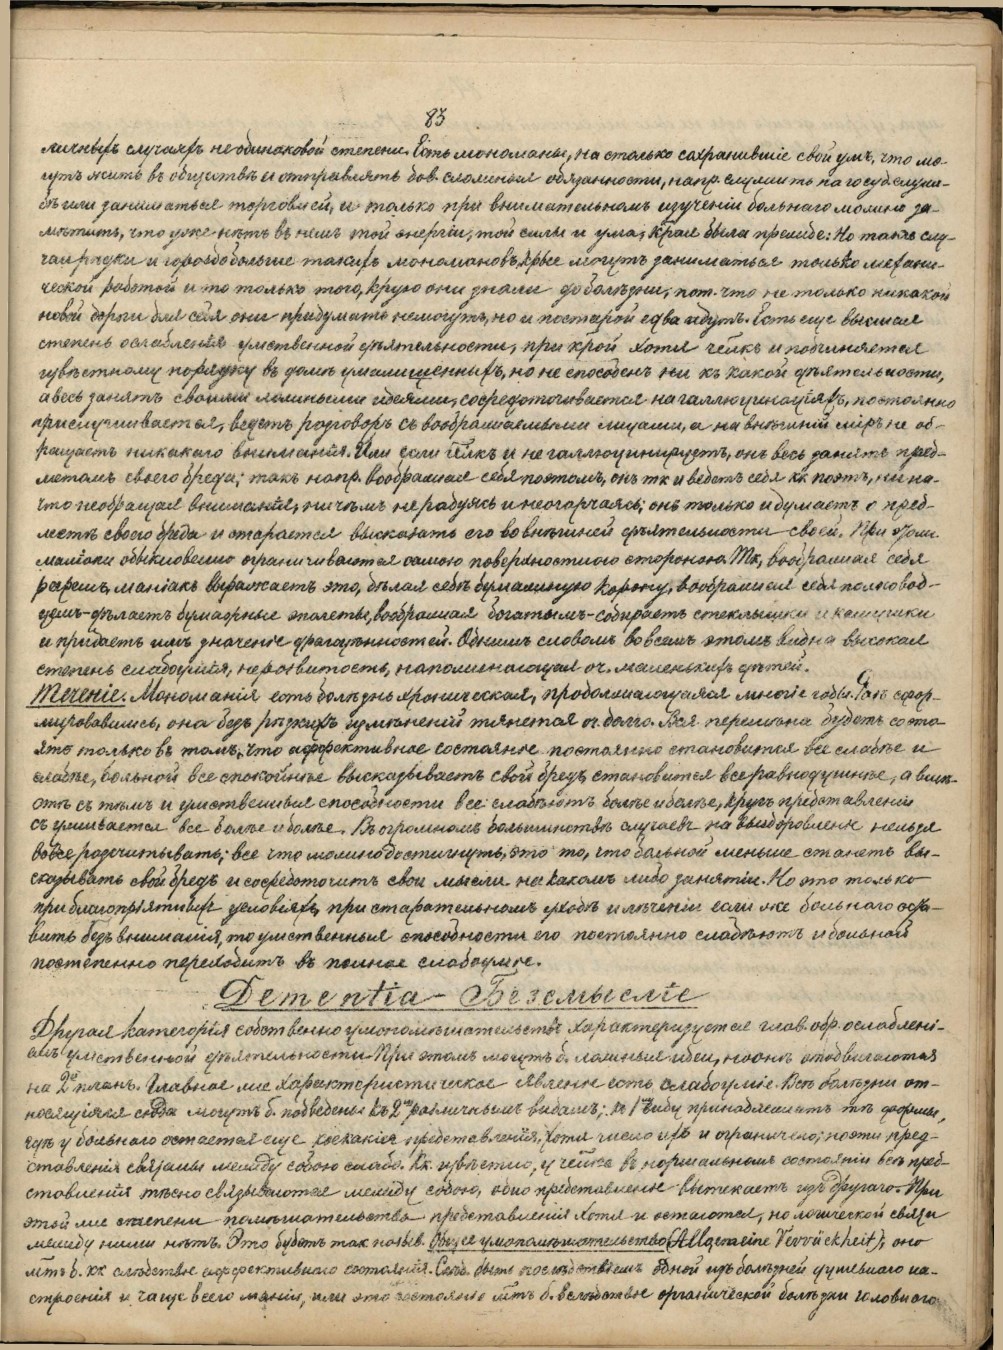 83
личныхъ случаяхъ не одинаковой степени. Есть мономаны, на столько сохранившіе свой умъ, что мо-
гутъ жить въ обществѣ и отправлять бов. сложныя обязанности, напр. служить на госуд. служ-
бѣ или заниматься торговлей, и только при внимательномъ изученіи больнаго можно за-
мѣтить, что уже нѣтъ въ немъ той энергіи, той силы и ума, края была прежде: Но такіе слу-
чаи рѣдки и гораздо больше такихъ мономановъ, крые могутъ заниматься только механи-
ческой работой и то только того, крую они знали до болѣзни, пот. что не только никакой
новой дороги для себя они придумать не могутъ, но и по старой едва идутъ. Есть еще высшая
степень ослабленія умственной дѣятельности, при крой хотя челкъ и подчиняется
извѣстному порядку въ домѣ умалишенныхъ, но не способенъ ни къ какой дѣятельности,
а весь занятъ своими ложными идеями, сосредоточивается на галлюцинаціяхъ, постоянно
прислушивается, ведетъ разговоръ съ воображаемыми лицами, а на внѣшній міръ не об-
ращаетъ никакого вниманія. Или если челкъ и не галлюцинируетъ, онъ весь занятъ пред-
метомъ своего бреда; такъ напр. воображая себя поэтомъ, онъ тк и ведетъ себя кк поэтъ, ни на
что не обращая вниманія, ничѣмъ не радуясь и не огорчаясь; онъ только и думаетъ о пред-
метѣ своего бреда и старается высказать его во внѣшней дѣятельности своей. При этом
маніаки обыкновенно ограничиваются самою поверхностною стороною. Тк, воображая себя
царемъ, маніакъ выражаетъ это, дѣлая себѣ бумажную корону, воображая себя полковод-
цемъ - дѣлаетъ бумажные эполеты, воображая богатымъ - собираетъ стеклышки и камушки
и придаетъ имъ значеніе драгоцѣнностей. Однимъ словомъ во всемъ этомъ видна высокая
степень слабоумія, неразвитость, напоминающая оч. маленькихъ дѣтей.
Теченіе. Мономанія есть болѣзнь хроническая, продолжающаяся многіе годы. Разъ сфор-
мировавшись, она безъ рѣзкихъ измѣненій тянется оч. долго. Вся перемѣна будетъ состо-
ять только въ томъ, что аффективное состояніе постоянно становится все слабѣе и
слабѣе, больной все спокойнѣе высказываетъ свой бредъ, становится все равнодушнѣе, а вмѣ-
стѣ съ тѣмъ и умственныя способности все слабѣютъ болѣе и болѣе, кругъ представленій
съуживается все болѣе и болѣе. Въ огромномъ большинствѣ случаевъ на выздоровленіе нельзя
вовсе разсчитывать; все что можно достигнуть, это то, что больной меньше станетъ вы-
сказывать свой бредъ и сосредоточитъ свои мысли на какомъ либо занятіи. Но это только
при благопріятныхъ условіяхъ, при старательномъ уходѣ и леченіи если же больнаго оста-
вить безъ вниманія, то умственныя способности его постоянно слабѣютъ и больной
постепенно переходитъ въ полное слабоуміе.
Dementia - Безсмысліе
Другая категорія собственно умопомѣшательствъ характеризуется глав. обр. ослаблені-
емъ умственной дѣятельности. При этомъ могутъ б. ложныя идеи, но онѣ отодвигаются
на 2й планъ. Главное же характеристическое явленіе есть слабоуміе. Всѣ болѣзни от-
носящіяся сюда могутъ б. подведены къ 2мъ различнымъ видамъ; къ 1му виду принадлежатъ тѣ формы,
гдѣ у больнаго остается еще коекакія представленія, хотя число ихъ и ограничено; но эти пред-
ставленія связаны между собою слабо. Кк извѣстно, у челка въ нормальномъ состояніи всѣ пред-
ставленія тѣсно связываются между собою, одно представленіе вытекаетъ изъ другаго. При
этой же степени помѣшательства представленія хотя и остаются, но логической связи
между ними нѣтъ. Это будетъ так назыв. общее умопомѣшательство (Allgemeine Verrücktheit), оно
мтъ б. кк слѣдствіе аффективнаго состоянія. Слѣд. быть послѣдствіемъ одной изъ болѣзней душевнаго на-
строенія и чаще всего маніи, или это состояніе мтъ б. вслѣдствіе органической болѣзни головнаго